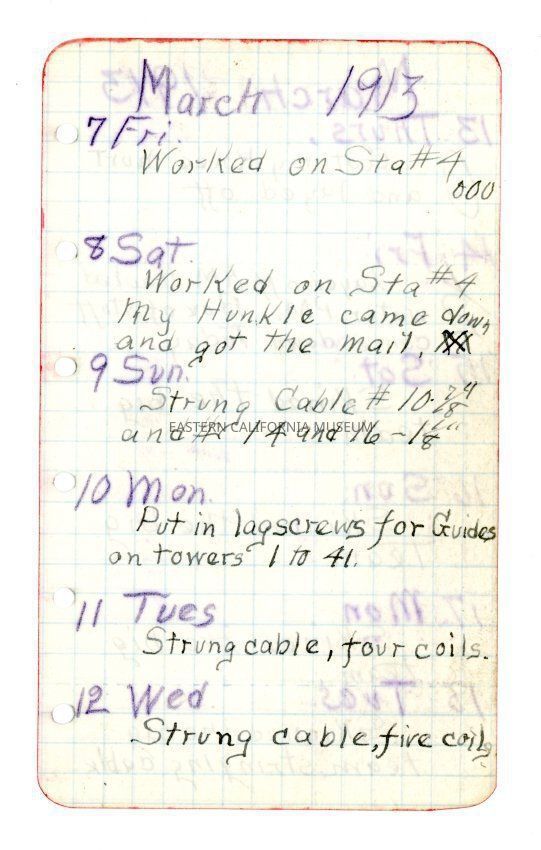 March 1913
7 Fri.
Worked on Sta #4
000
8 Sat.
Worked on Sta #4
My Hunkle came down
and got the mail, XX
9 Sun.
Strung Cable # 10-7/8"
EASTERN CALIFORNIA MUSEUM
and # 14 and 16 - 1 1/8"
10 Mon.
Put in lagscrews for Guides
on towers 1 to 41.
11 Tues
Strung cable, four coils.
12 Wed
Strung cable, five coils.